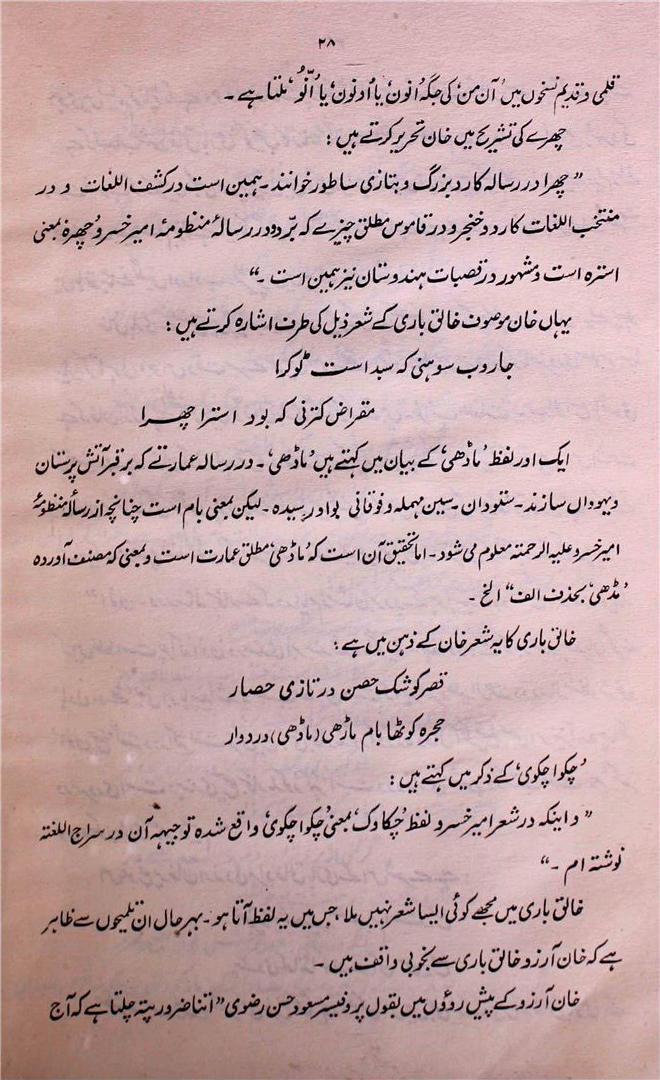 ۲۸
قلمی و قدیم نسخوں میں ’آن من‘ کی جگہ ’انون‘ یا ’اونون‘ یا ’اُنّوُ‘ ملتا ہے ۔
چھرے کی تشریح میں خان تحریر کرتے ہیں :
” چھرا در رسالہ کارد بزرگ و بتازی ساطور خوانند ۔ ہمین است در کشف اللغات و در
منتخب اللغات کارد و خنجر و در قاموس مطلق چیزے کہ بّرد ودر رسالۂ منظومۂ امیر خسرو چھرۃ بمعنی
استرہ است و مشہور در قصبات ہندوستان نیز ہمین است ۔“
یہاں خان موصوف خالق باری کے شعر ذیل کی طرف اشارہ کرتے ہیں :
جاروب سوہنی کہ سبد است ٹوکرا
مقراض کترنی کہ بود استرا چھرا
ایک اور لفظ ’ماڈھی‘ کے بیان میں کہتے ہیں ’ماڈھی‘ ۔ در رسالہ عمارتے کہ بر قبر آتش پرستان
و یہوداں سازند ۔ ستودان ۔ سین مہملہ و فوقانی بواو رسیدہ ۔ لیکن بمعنی بام است چنانچہ از رسالۂ منظومۂ
امیر خسرو علیہ الرحمتہ معلوم می شود ۔ اما تحقیق آن است کہ ’ماڈھی‘ مطلق عمارت است و بمعنی کہ مصنف آوردہ
’مڈھی‘ بحذف الف“ الخ ۔
خالق باری کا یہ شعر خان کے ذہن میں ہے :
قصر کوشک حصن در تازی حصار
حجرہ کوٹھا بام ماڑھی (ماڈھی) در دوار
’چکوا چکوی‘ کے ذکر میں کہتے ہیں :
” و اینکہ در شعر امیر خسرو لفظ ’چکاوک‘ بمعنی ’چکوا چکوی‘ واقع شدہ توجیہہ آن در سراج اللغتہ
نوشتہ ام ۔“
خالق باری میں مجھے کوئی ایسا شعر نہیں ملا جس میں یہ لفظ آتا ہو ۔ بہر حال ان تلمیحوں سے ظاہر
ہے کہ خان آرزو خالق باری سے بخوبی واقف ہیں ۔
خان آرزو کے پیش روؤں میں بقول پروفیسر مسعود حسن رضوی ” اتنا ضرور پتہ چلتا ہے کہ آج